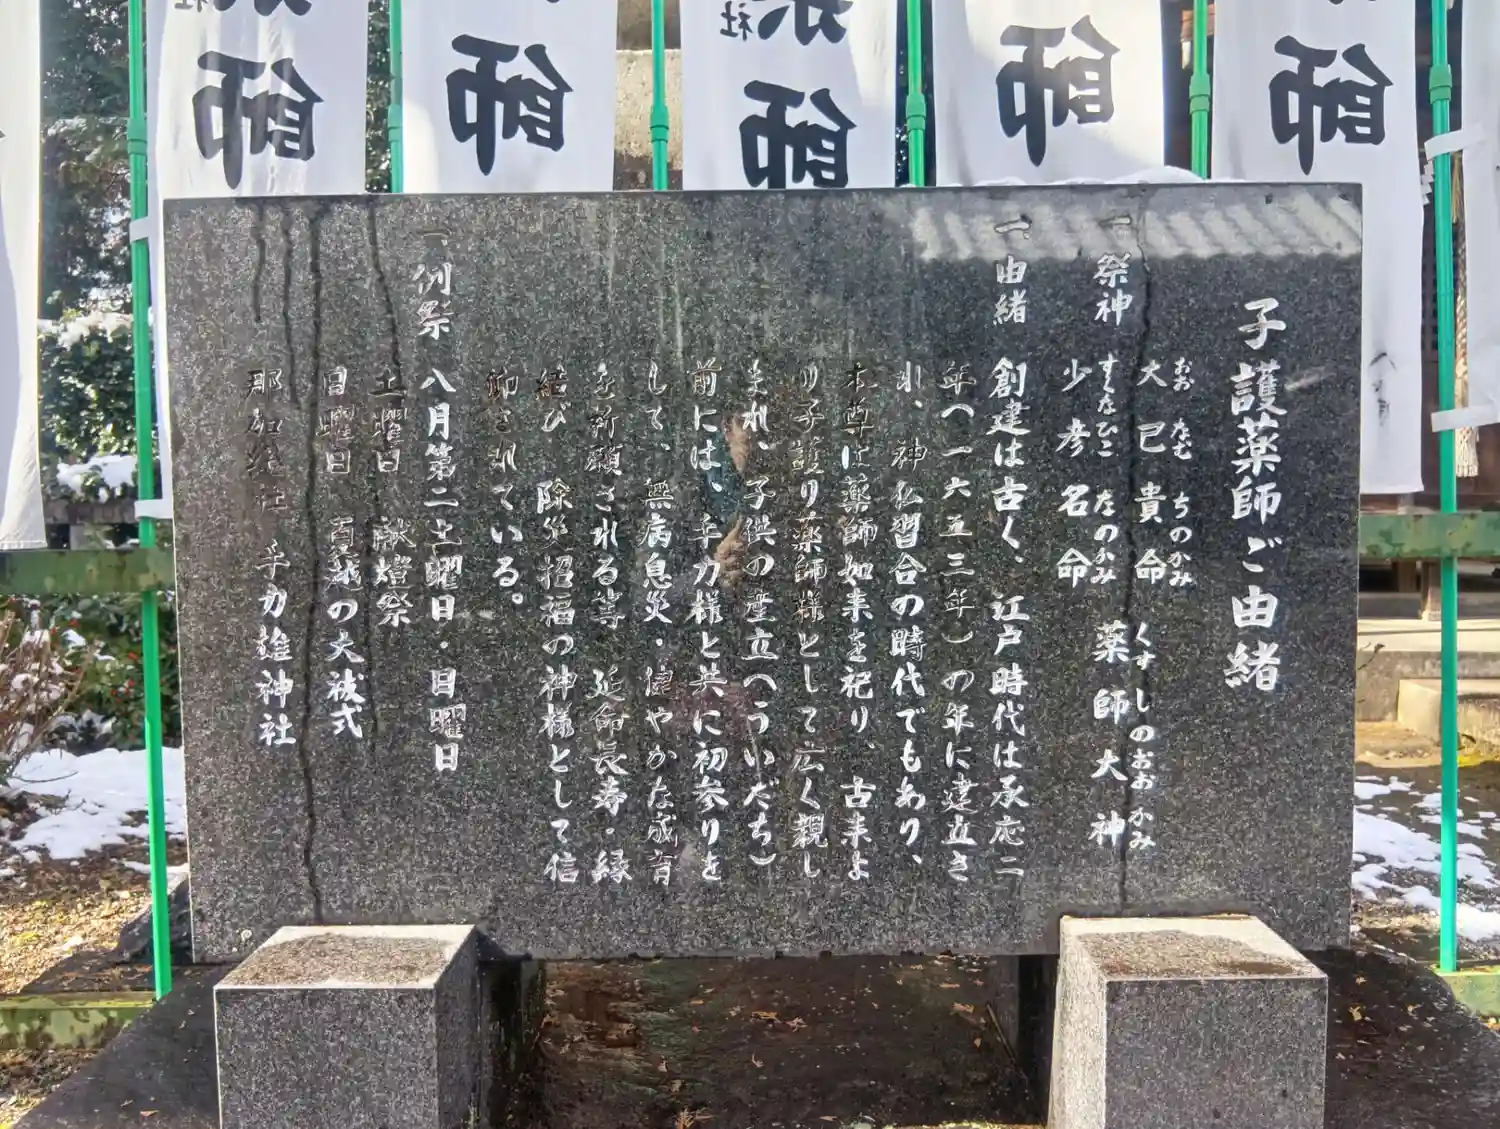 子護薬師ご由緒
一、祭神 大己貴命 薬師大神
おおなむちのかみ くすしのおおかみ
少彦名命
すくなひこなのかみ
一、由緒 創建は古く、江戸時代は承応二
年（一六五三年）の年に建立さ
れ、神仏習合の時代でもあり、
本尊は薬師如来を祀り、古来よ
り子護り薬師様として広く親し
まれ、子供の産立（ういだち）
前には、手力様と共に初参りを
して、無病息災・健やかな成育
を祈願される等、延命長寿・縁
結び、除災招福の神様として信
仰されている。
一、例祭 八月第二土曜日・日曜日
土曜日 献燈祭
日曜日 夏越の大祓式
那加総社 手力雄神社
師
師
師
師
師
社